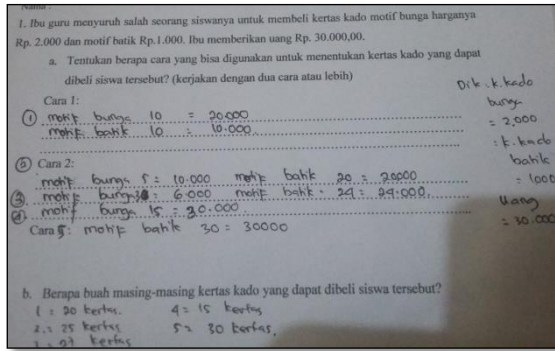 Nama :
1. Ibu guru menyuruh salah seorang siswanya untuk membeli kertas kado motif bunga harganya
Rp. 2.000 dan motif batik Rp.1.000. Ibu memberikan uang Rp. 30.000,00.
a. Tentukan berapa cara yang bisa digunakan untuk menentukan kertas kado yang dapat
dibeli siswa tersebut? (kerjakan dengan dua cara atau lebih)
Dik : k. kado
bunga
= 2,000
: k. kado
batik
= 1000
Uang
= 30.000
Cara 1:
① motif bunga 10 = 20.000
motif batik 10 = 10.000
② Cara 2:
motif bunga 5 = 10.000 motif batik 20 = 20000
③ motif bunga 3 = 6.000 motif batik = 24 = 24.000
④ motif bunga 15 = 30.000
Cara 5: motif batik 30 = 30000
b. Berapa buah masing-masing kertas kado yang dapat dibeli siswa tersebut?
1 = 20 kertas. 4 = 15 kertas
2. = 25 kertas 5 = 30 kertas.
3 = 27 kertas